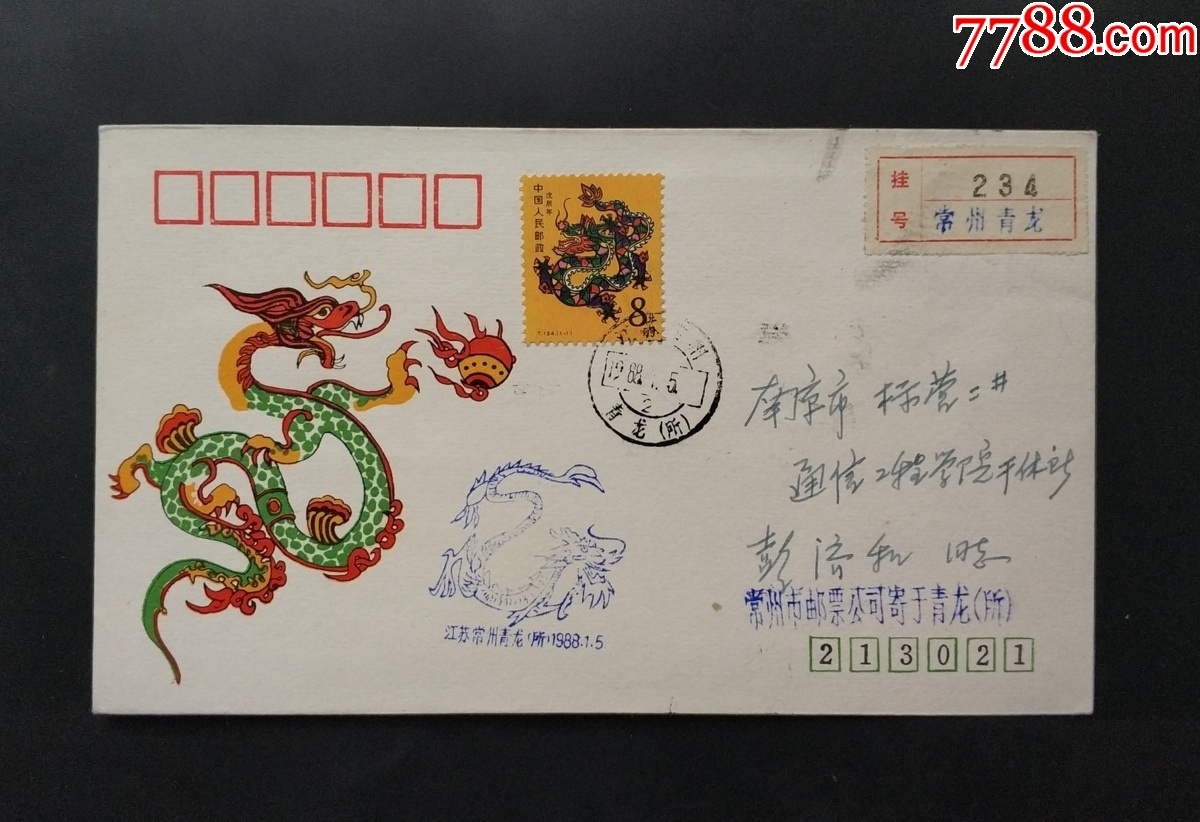 7788.com
挂号
234
常州青龙
中国人民邮政
戊辰年
8分
T.124.(1-1)
1988.1.5
2
青龙(所)
南京市 标营二#
通信工程学院干休所
彭济和 同志
常州市邮票公司寄于青龙(所)
213021
江苏常州青龙(所)1988.1.5